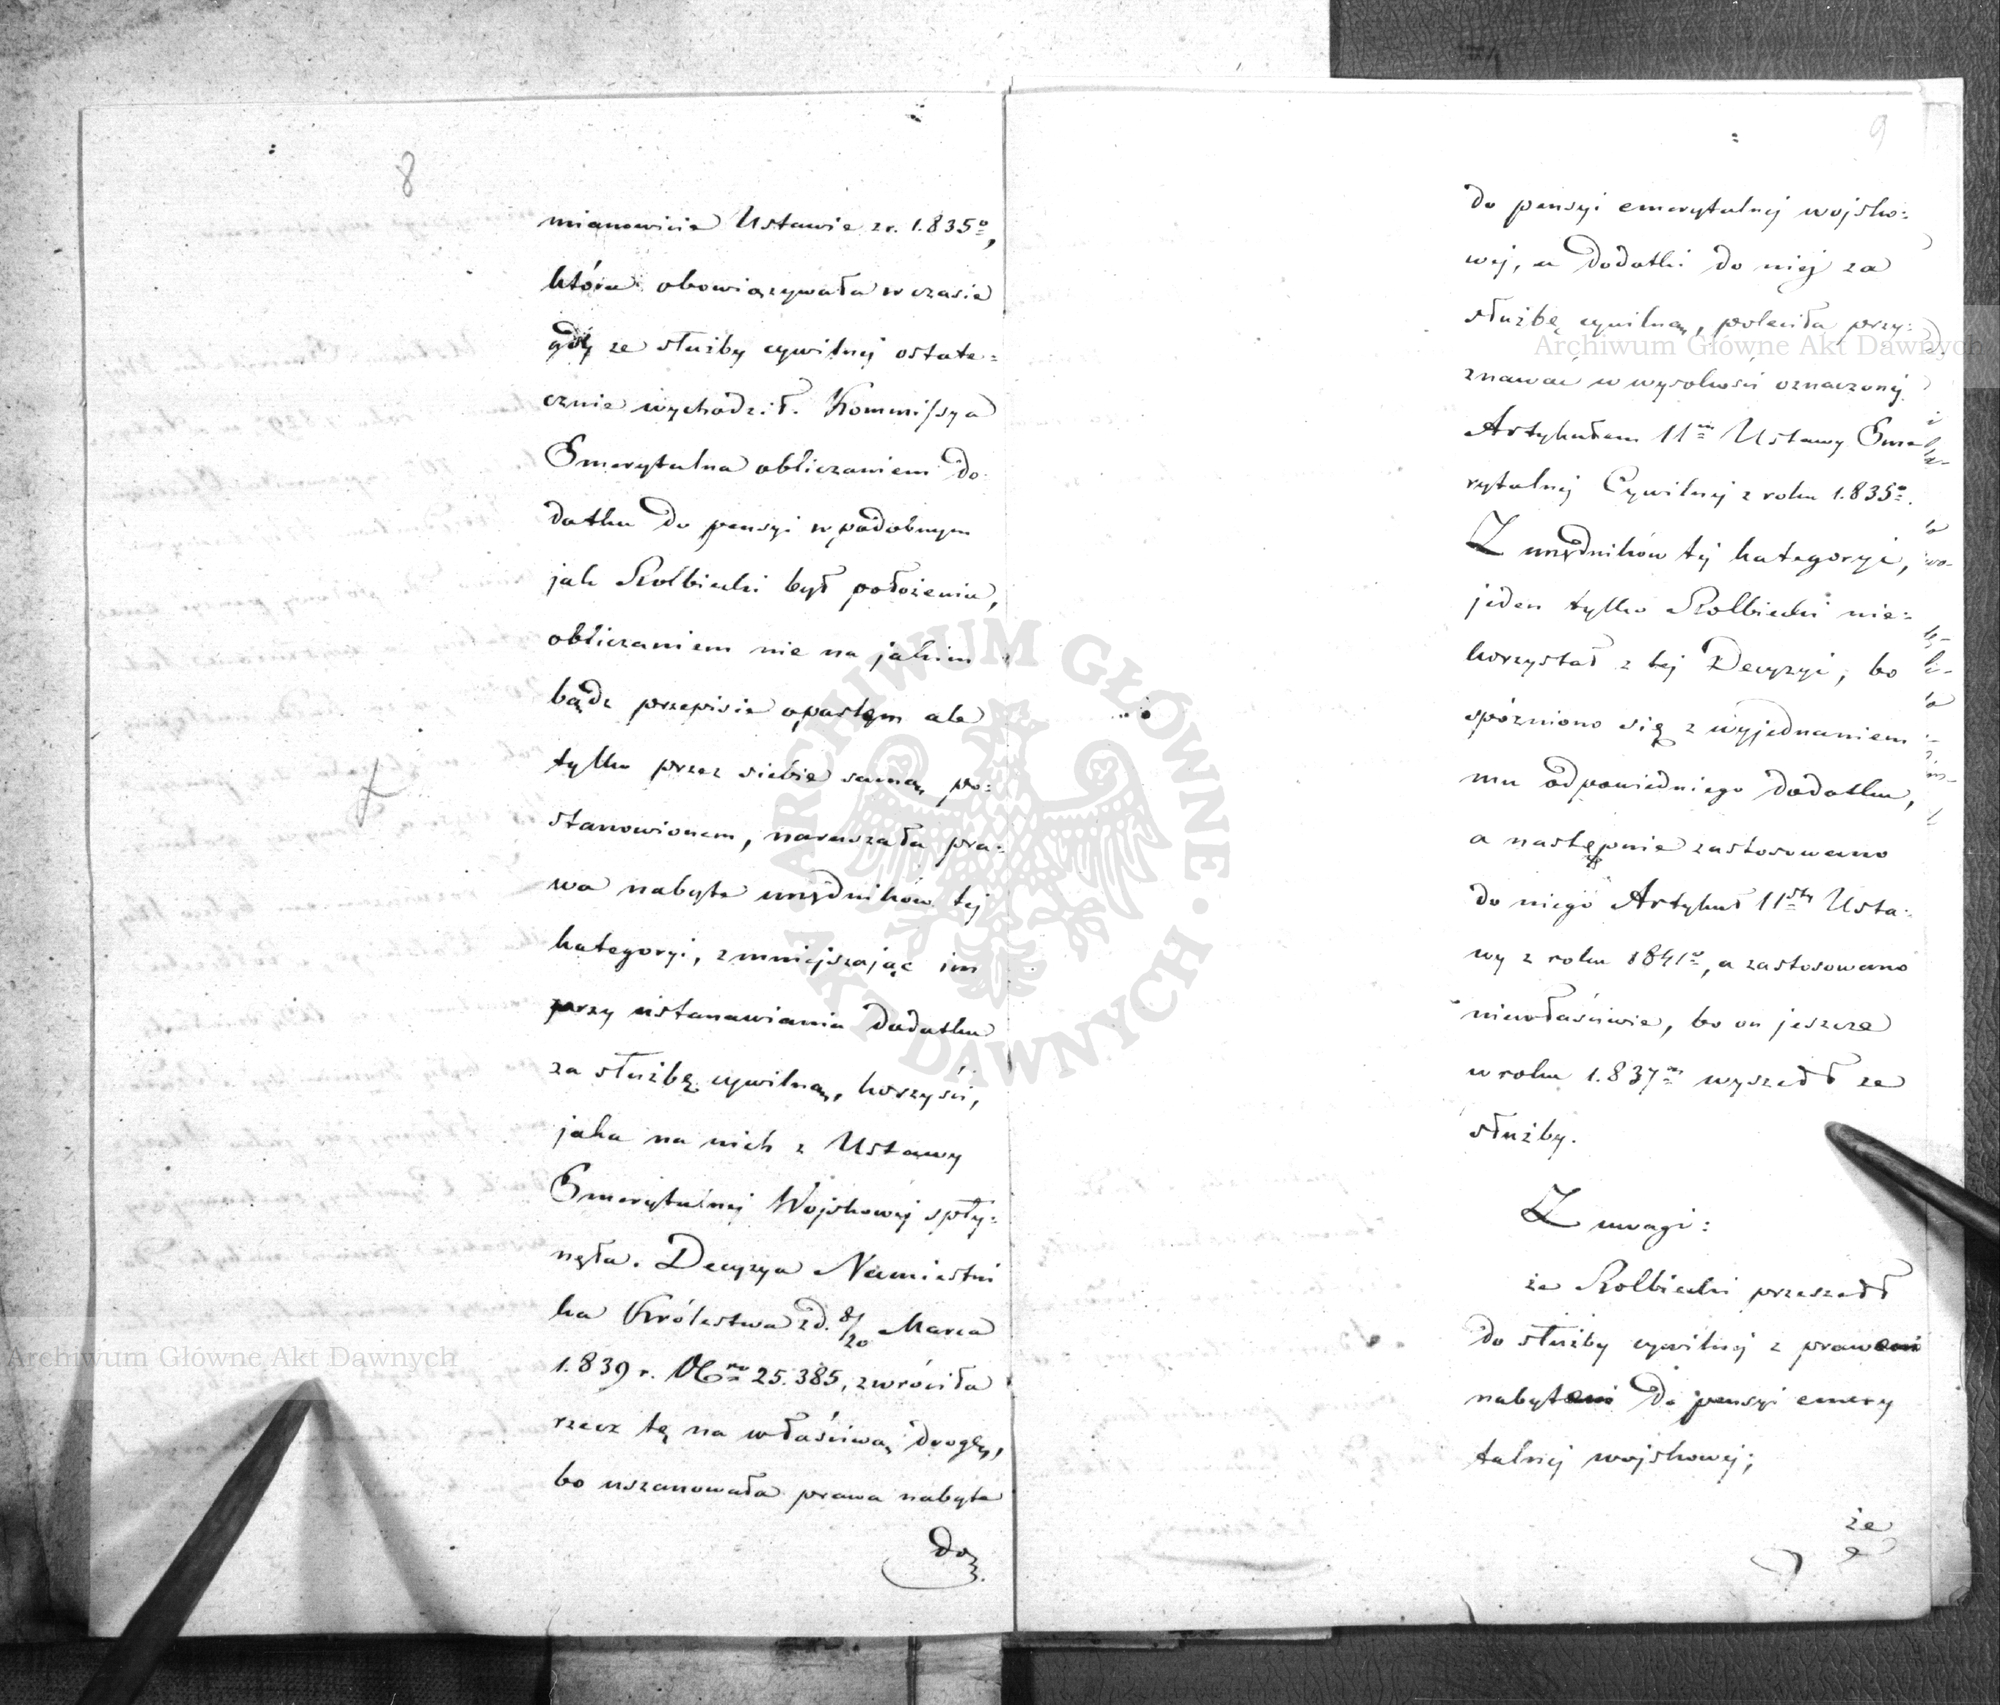 8
mianowicie Ustawie z r. 1.835º,
która obowiązywała w czasie
gdy ze służby cywilnej ostate=
cznie wychodził. Kommissya
Emerytalna obliczaniem do
datku do pensyi w podobnym
jak Kolbiecki był położeniu,
obliczaniem nie na jakim
bądz przepisie opartem ale
tylko przez siebie samą po=
stanowionem, naruszała pra=
wa nabyte urzędników tej
kategoryi, zmniejszając im
przy ustanawianiu dodatku
za służbę cywilną, korzyści,
jaka na nich z Ustawy
Emerytalnej Wojskowej spły=
nęła. Decyzya Namiestni
ka Królestwa z d. 8/20 Marca
1.839 r. Nro 25.385, zwróciła
rzecz tę na właściwą drogę,
bo uszanowała prawa nabyte
do
9
do pensyi emerytalnej wojsko=
wej, a dodatki do niej za
służbę cywilną, poleciła przy=
znawać w wysokości oznaczonej
Artykułem 11m Ustawy Eme
rytalnej Cywilnej z roku 1.835º.
Z urzędników tej kategoryi,
jeden tylko Kolbiecki nie=
korzystał z tej Decyzyi, bo
spózniono się z wyjednaniem
mu odpowiedniego dodatku,
a następnie zastosowano
do niego Artykuł 11sty Usta=
wy z roku 1841º, a zastosowano
niewłaściwie, bo on jeszcze
w roku 1.837m wyszedł ze
służby.
Z uwagi:
że Kolbiecki przeszedł
do służby cywilnej z prawem
nabytem do pensyi emery
talnej wojskowej;
że
Archiwum Główne Akt Dawnych
Archiwum Główne Akt Dawnych
ARCHIWUM GŁÓWNE
AKT DAWNYCH